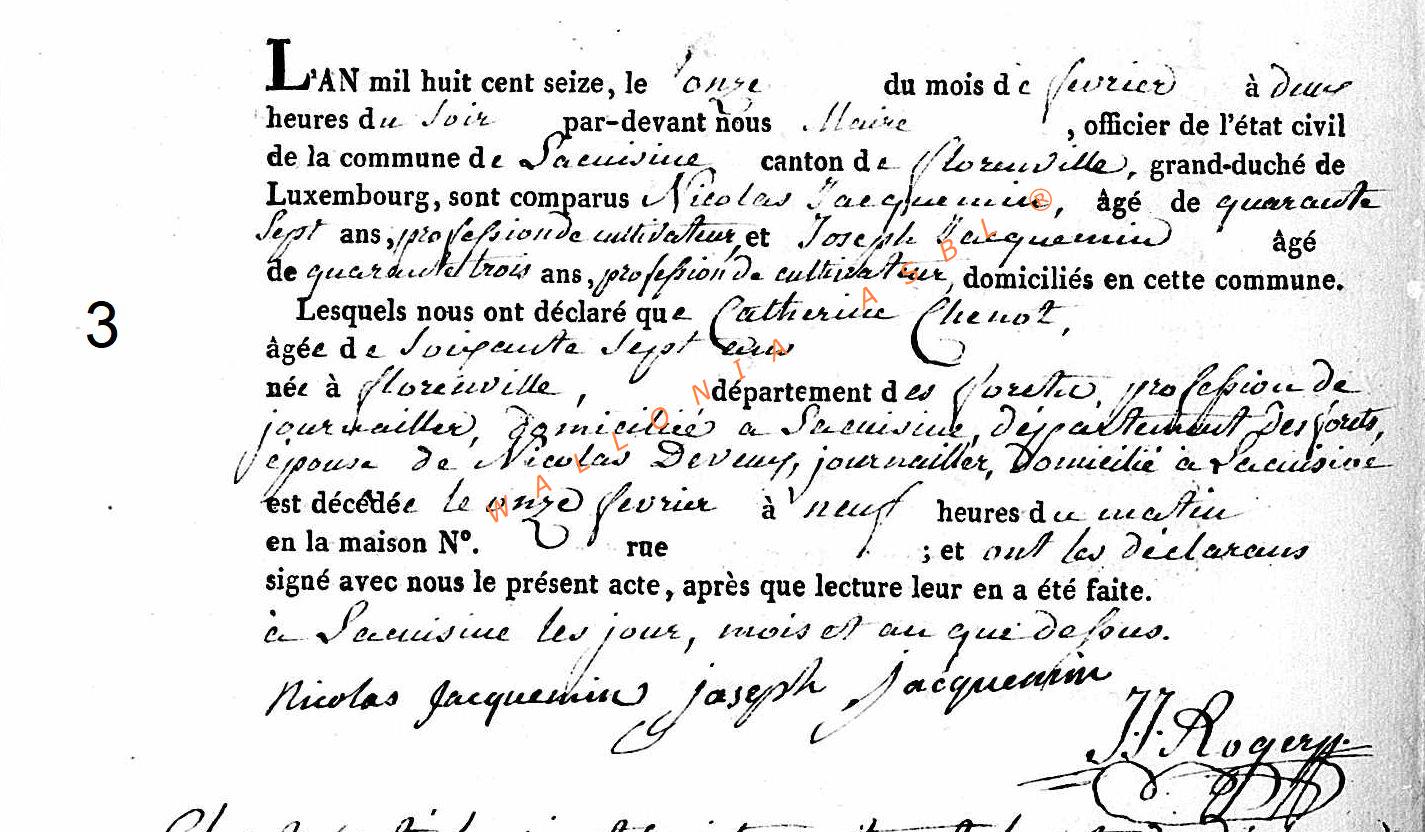 L'AN mil huit cent seize, le onze du mois de fevrier à deux
heures du Soir par-devant nous Maire , officier de l'état civil
de la commune de Lacuisine canton de florenville, grand-duché de
Luxembourg, sont comparus Nicolas Jacquemin, âgé de quarante
Sept ans, profession de cultivateur, et Joseph Jacquemin âgé
de quarante trois ans, profession de cultivateur, domiciliés en cette commune.
3
Lesquels nous ont déclaré que Catherine Chenot,
âgée de Soixante Sept ans
née à florenville, département des forets, profession de
journailler, domiciliée a Lacuisine, département Des forets,
épouse de Nicolas Deveux, journailler, Domicilié à Lacuisine
est décédée le onze fevrier à neuf heures du matin
en la maison N°. rue ; et ont les déclarans
signé avec nous le présent acte, après que lecture leur en a été faite.
à Lacuisine les jour, mois et an que dessus.
Nicolas Jacquemin joseph jacquemin
J.J. Roger
WALLONIA ASBL ®